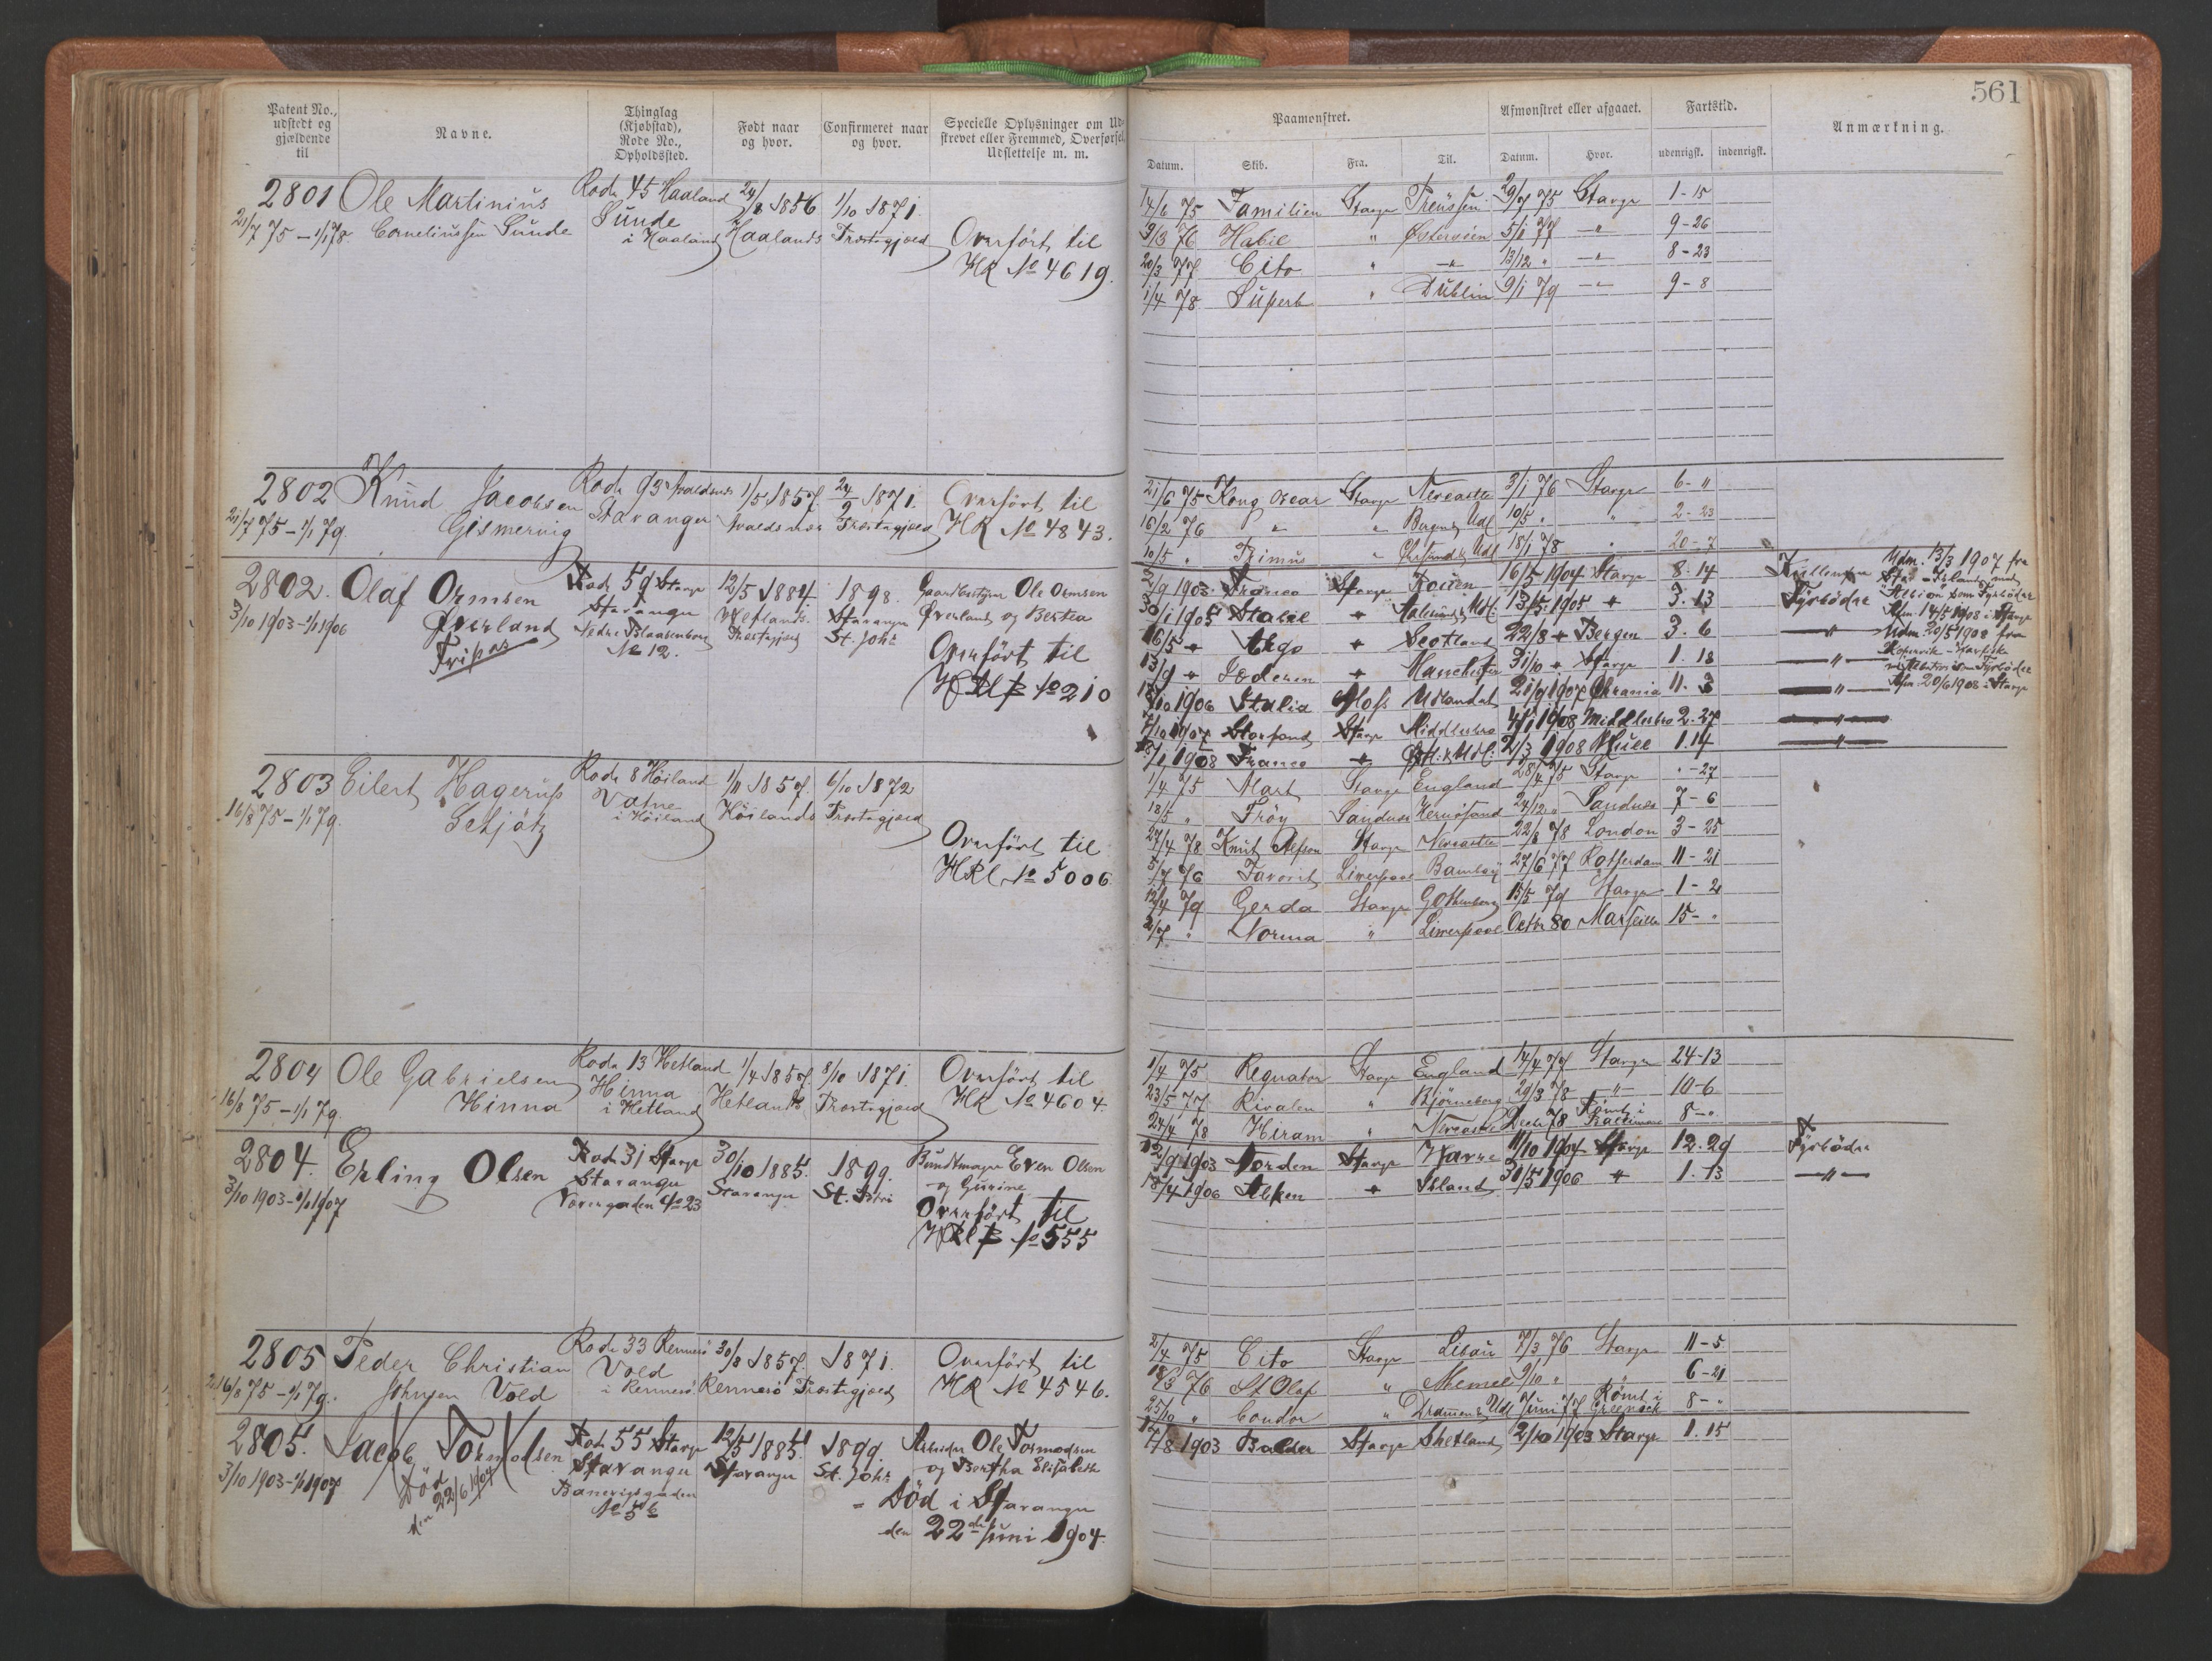 561
Patent No., udstedt og gjældende til
Navne.
Thinglag (Kjøbstad), Rode No., Opholdssted.
Født naar og hvor.
Confirmeret naar og hvor.
Specielle Oplysninger om Udskrevet eller Fremmed, Overførsel, Udslettelse m. m.
Paamønstret.
Datum. Skib. Fra. Til.
Afmønstret eller afgaaet.
Datum. Hvor.
Fartstid.
udenrigsk. indenrigsk.
Anmærkning.
2801 Ole Martinius
Corneliussen Sunde
21/7 75 - 1/1 78.
Rode 45 Haaland
Sunde
i Haaland
24/8 1856
Haalands
1/10 1871.
Præstegjæld
Overført til
HR No 4619.
14/6 75 Familien Stavgr Preussen 29/7 75 Stavgr 1-15
9/3 76 Habil " Østersøen 5/1 77 -"- 9-26
20/3 77 Cito " -"- 13/12 " -"- 8-23
1/4 78 Superb " Dublin 9/1 79 -"- 9-8
2802 Knud Jacobsen
Gismervig
21/7 75 - 1/1 79.
Rode 93 Avaldsnæs
Stavanger
1/5 1857.
Avaldsnæs
24/9 1871.
Præstegjæld
Overført til
HR No 4843.
21/6 75 Kong Oscar Stavgr Newcastle 3/1 76 Stavgr 6-"
16/2 76 " " Bergen & Udl 10/5 " " 2-23
10/5 " Primus " 18/1 78 " 20-7
2802. Olaf Ormsen
Øverland
Fripas
3/10 1903 - 1/1 1906
Rode 59 Stavgr
Stavanger
Nedre Blaasenborg
No 12.
12/5 1884
Hetlands
Præstegjæld
1898.
Stavanger
St. Joh's
Gaardbestyrer Ole Ormsen
Øverland og Bertea
Overført til
HRl B No 210
2/9 1903 Franco Stavgr Rouen 16/5 1904 Stavgr 8.14
30/1 1905 Stabil " 13/5 1905 " 3.13 Fyrbøder
16/5 " Argo " Scotland 22/8 " Bergen 3.6 -"-
13/9 " Jæderen " Manchester 31/10 " Stavgr 1.18 -"-
1906 Italia Udlandet 21/9 1907 Chrania 11.3 -"-
7/10 1907 Storfond Stavgr Middlesbro 4/1 1908 Middlesbro 2.27 -"-
18/1 1908 Franco " 2/3 1908 Hull 1.14 -"-
Udm. 13/3 1907 fra
Stav - Island med
Albion som Fyrbøder
Afm. 14/5 1908 i Stavgr
Udm. 20/5 1908 fra
Fyrbøder
Afm. 20/6 1908 i Stavgr
2803 Eilert Hagerup
Schjøtz
16/8 75 - 1/1 79.
Rode 8 Høiland
Vatne
i Høiland
1/11 1857.
Høilands
6/10 1872
Præstegjæld
Overført til
HRl No 5006
1/4 75 Mart Stavgr England 28/4 75 Stavgr "-27
18/5 " Frøy Sandnes Hernøsand 24/12 " Sandnes 7-6
27/4 78 Knut Alfson Stavgr Newcastle 22/8 78 London 3-25
5/7 76 Favorit Liverpool Bambay 27/6 77 Rotterdam 11-21
12/4 79 Gerda Stavgr Gothenborg 15/5 79 Stavgr 1-2
2/7 " Norma " Liverpool Octbr 80 Marseille 15-"
2804 Ole Gabrielsen
Hinna
16/8 75 - 1/1 79.
Rode 13 Hetland
Hinna
i Hetland
1/4 1857
Hetlands
8/10 1871.
Præstegjæld
Overført til
HR No 4604.
1/4 75 Regnator Stavgr England 14/4 77 Stavgr 24-13
23/5 77 Rivalen " Bjørneborg 29/3 78 -"- 10-6
24/4 78 Hiram " Newcastle Decbr 78 Rømt i 8-"
2804. Erling Olsen
3/10 1903 - 1/1 1907
Rode 31 Stavgr
Stavanger
No 23
30/10 1885.
Stavanger
1899.
St. Petri
Bundtmager Even Olsen
og Gurine
Overført til
HRl B No 555
12/9 1903 Norden Stavgr Havre 11/10 1904 Stavgr 12.29 Fyrbøder
18/4 1906 Alken " Island 31/5 1906 " 1.13 -"-
2805 Peder Christian
Johnsen Vold
16/8 75 - 1/1 79.
Rode 33 Rennesø
Vold
i Rennesø
30/8 1857.
Rennesø
1871.
Præstegjæld
Overført til
HR No 4546.
2/4 75 Cito Stavgr Libau 7/3 76 Stavgr 11-5
18/3 76 St Olaf " Memel 9/10 " " 6-21
25/10 " Condor " Drammen & Udl Juni 77 Rømt i Greenock 8-"
2805. Jacob Tormodsen
Død
den 22/6 1904
3/10 1903 - 1/1 1907
Rode 55 Stavgr
Stavanger
Banevigsgaden
No 56
12/5 1885.
Stavanger
1899.
St. Joh's
Arbeider Ole Tormodsen
og Bertha Elisabeth
- Død i Stavanger
den 22de Juni 1904.
17/8 1903 Balder Stavgr Shetland 2/10 1903 Stavgr 1.15